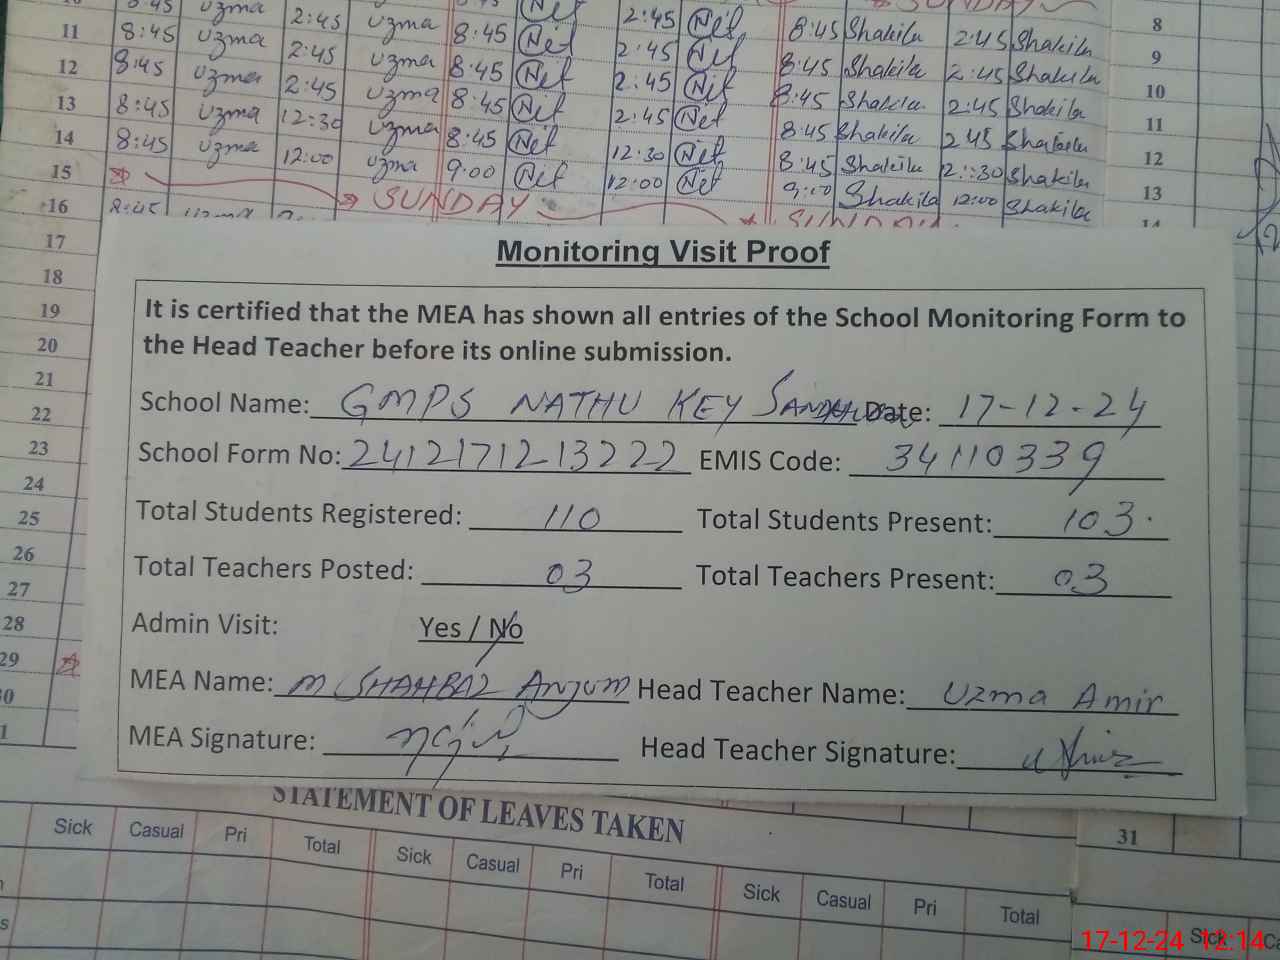 8:45 uzma 2:45 uzma 8:45 Net 2:45 Net
11 8:45 uzma 2:45 uzma 8:45 Net 2:45 Net 8:45 Shakila 2:45 Shakila 8
12 8:45 uzma 2:45 uzma 8:45 Net 2:45 Net 8:45 Shakila 2:45 Shakila 9
13 8:45 uzma 12:30 uzma 8:45 Net 2:45 Net 8:45 Shakila 2:45 Shakila 10
14 8:45 uzma 12:00 uzma 9:00 Net 12:30 Net 8:45 Shakila 2:45 Shakila 11
15 SUNDAY 12:00 Net 8:45 Shakila Shakila 12
16 8:45 9:00 Shakila 12:00 Shakila 13
17 SUNDAY 14
18
19
20
21
22
23
24
25
26
27
28
29
Monitoring Visit Proof
It is certified that the MEA has shown all entries of the School Monitoring Form to
the Head Teacher before its online submission.
School Name: GMPS NATHU KEY Date: 17-12-24
School Form No: 2412171213222 EMIS Code: 34110339
Total Students Registered: 110 Total Students Present: 103
Total Teachers Posted: 03 Total Teachers Present: 03
Admin Visit: Yes / No
MEA Name: M SHAHBAZ ANJUM Head Teacher Name: Uzma Amir
MEA Signature: Head Teacher Signature:
STATEMENT OF LEAVES TAKEN 31
Sick Casual Pri Total Sick Casual Pri Total Sick Casual Pri Total Sick
17-12-24 12:14